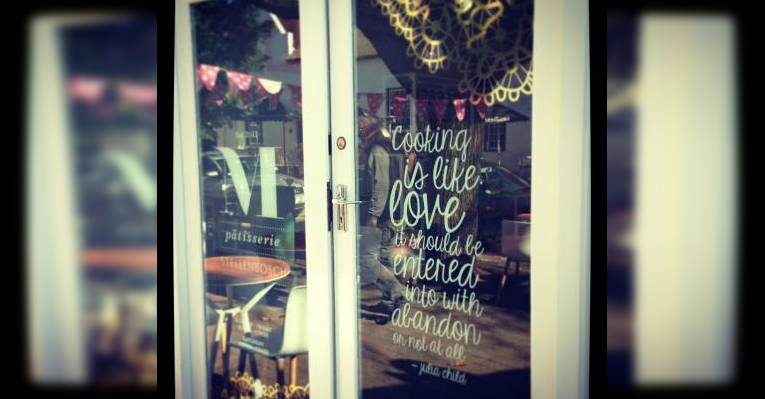 M
pâtisserie
STELLENBOSCH
Cooking
is like
love
it should be
entered
into with
abandon
or not at all
- julia child